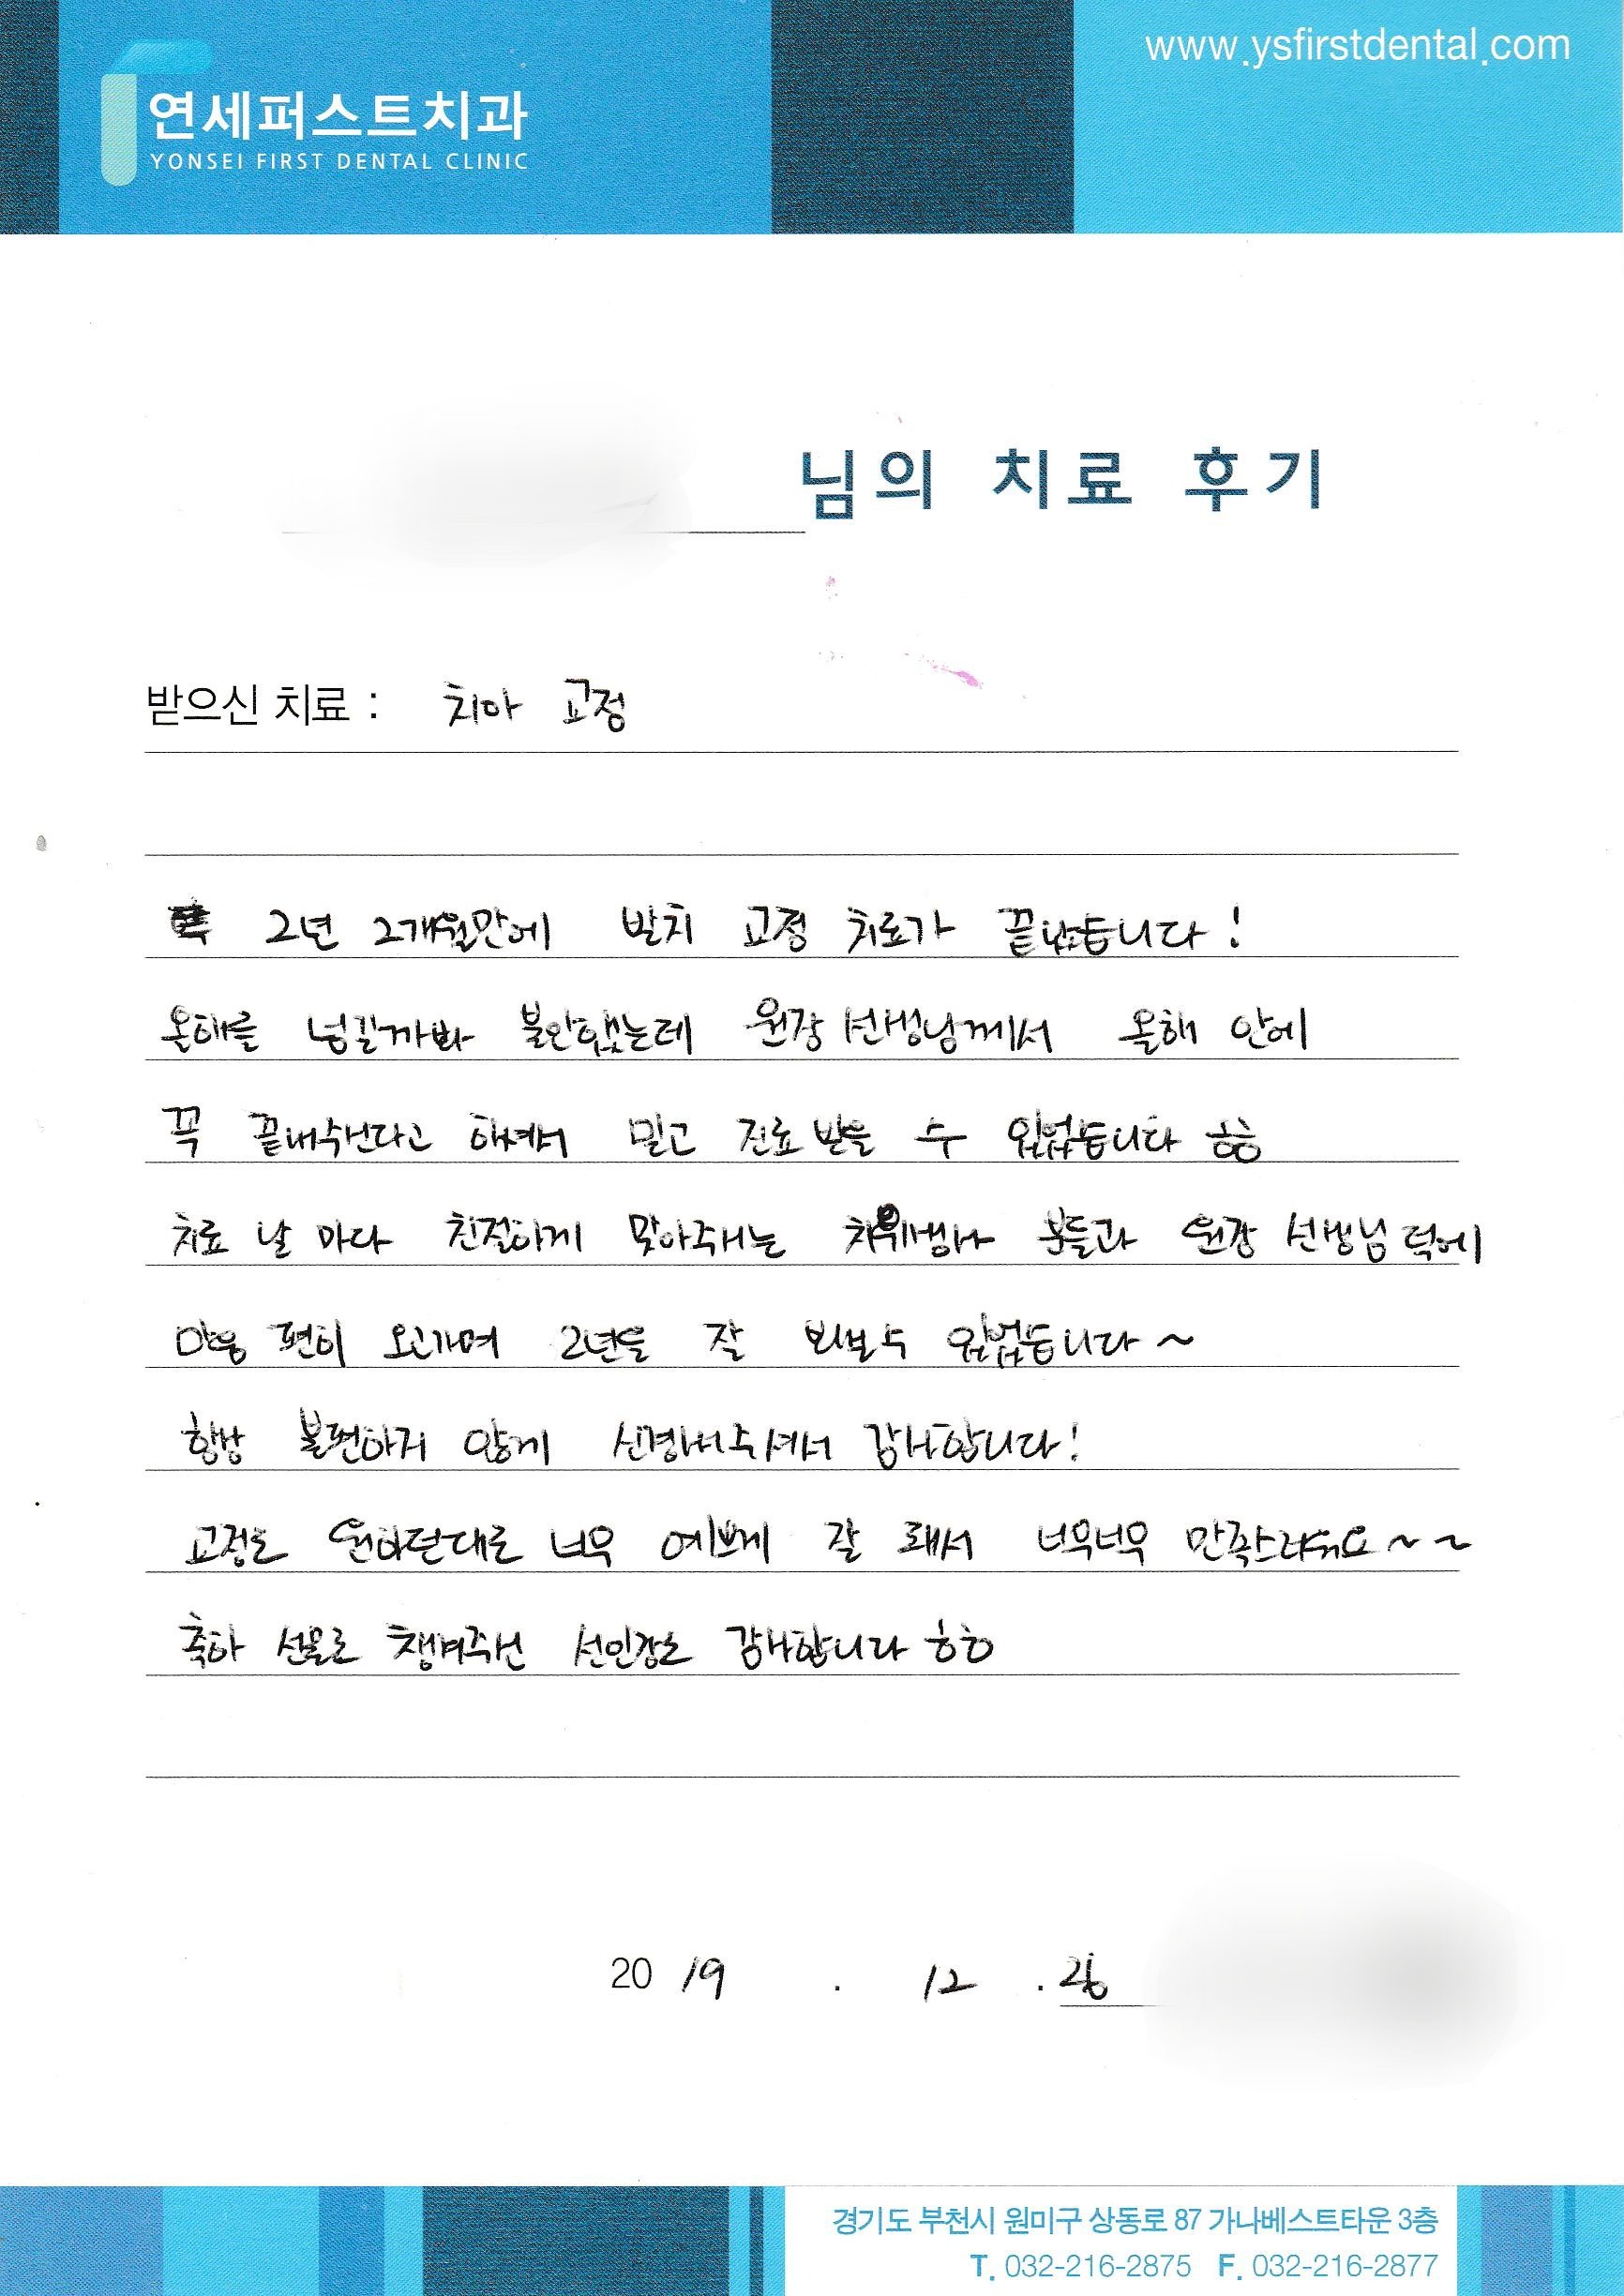 www.ysfirstdental.com
연세퍼스트치과
YONSEI FIRST DENTAL CLINIC
님의 치료 후기
받으신 치료 : 치아 교정
2년 2개월만에 발치 교정 치료가 끝났습니다!
올해를 넘길까봐 불안했는데 원장 선생님께서 올해 안에
꼭 끝내주신다고 하셔서 믿고 진료 받을 수 있었습니다 ㅎㅎ
치료 날 마다 친절하게 맞아주시는 치위생사 분들과 원장 선생님 덕에
마음 편히 오고가며 2년을 잘 버틸 수 있었습니다~
항상 불편하지 않게 신경써주셔서 감사합니다!
교정도 원하던대로 너무 예쁘게 잘 돼서 너무너무 만족스러워요~~
축하 선물로 챙겨주신 선인장도 감사합니다 ㅎㅎ
2019 . 12 .
경기도 부천시 원미구 상동로 87 가나베스트타운 3층
T. 032-216-2875 F. 032-216-2877